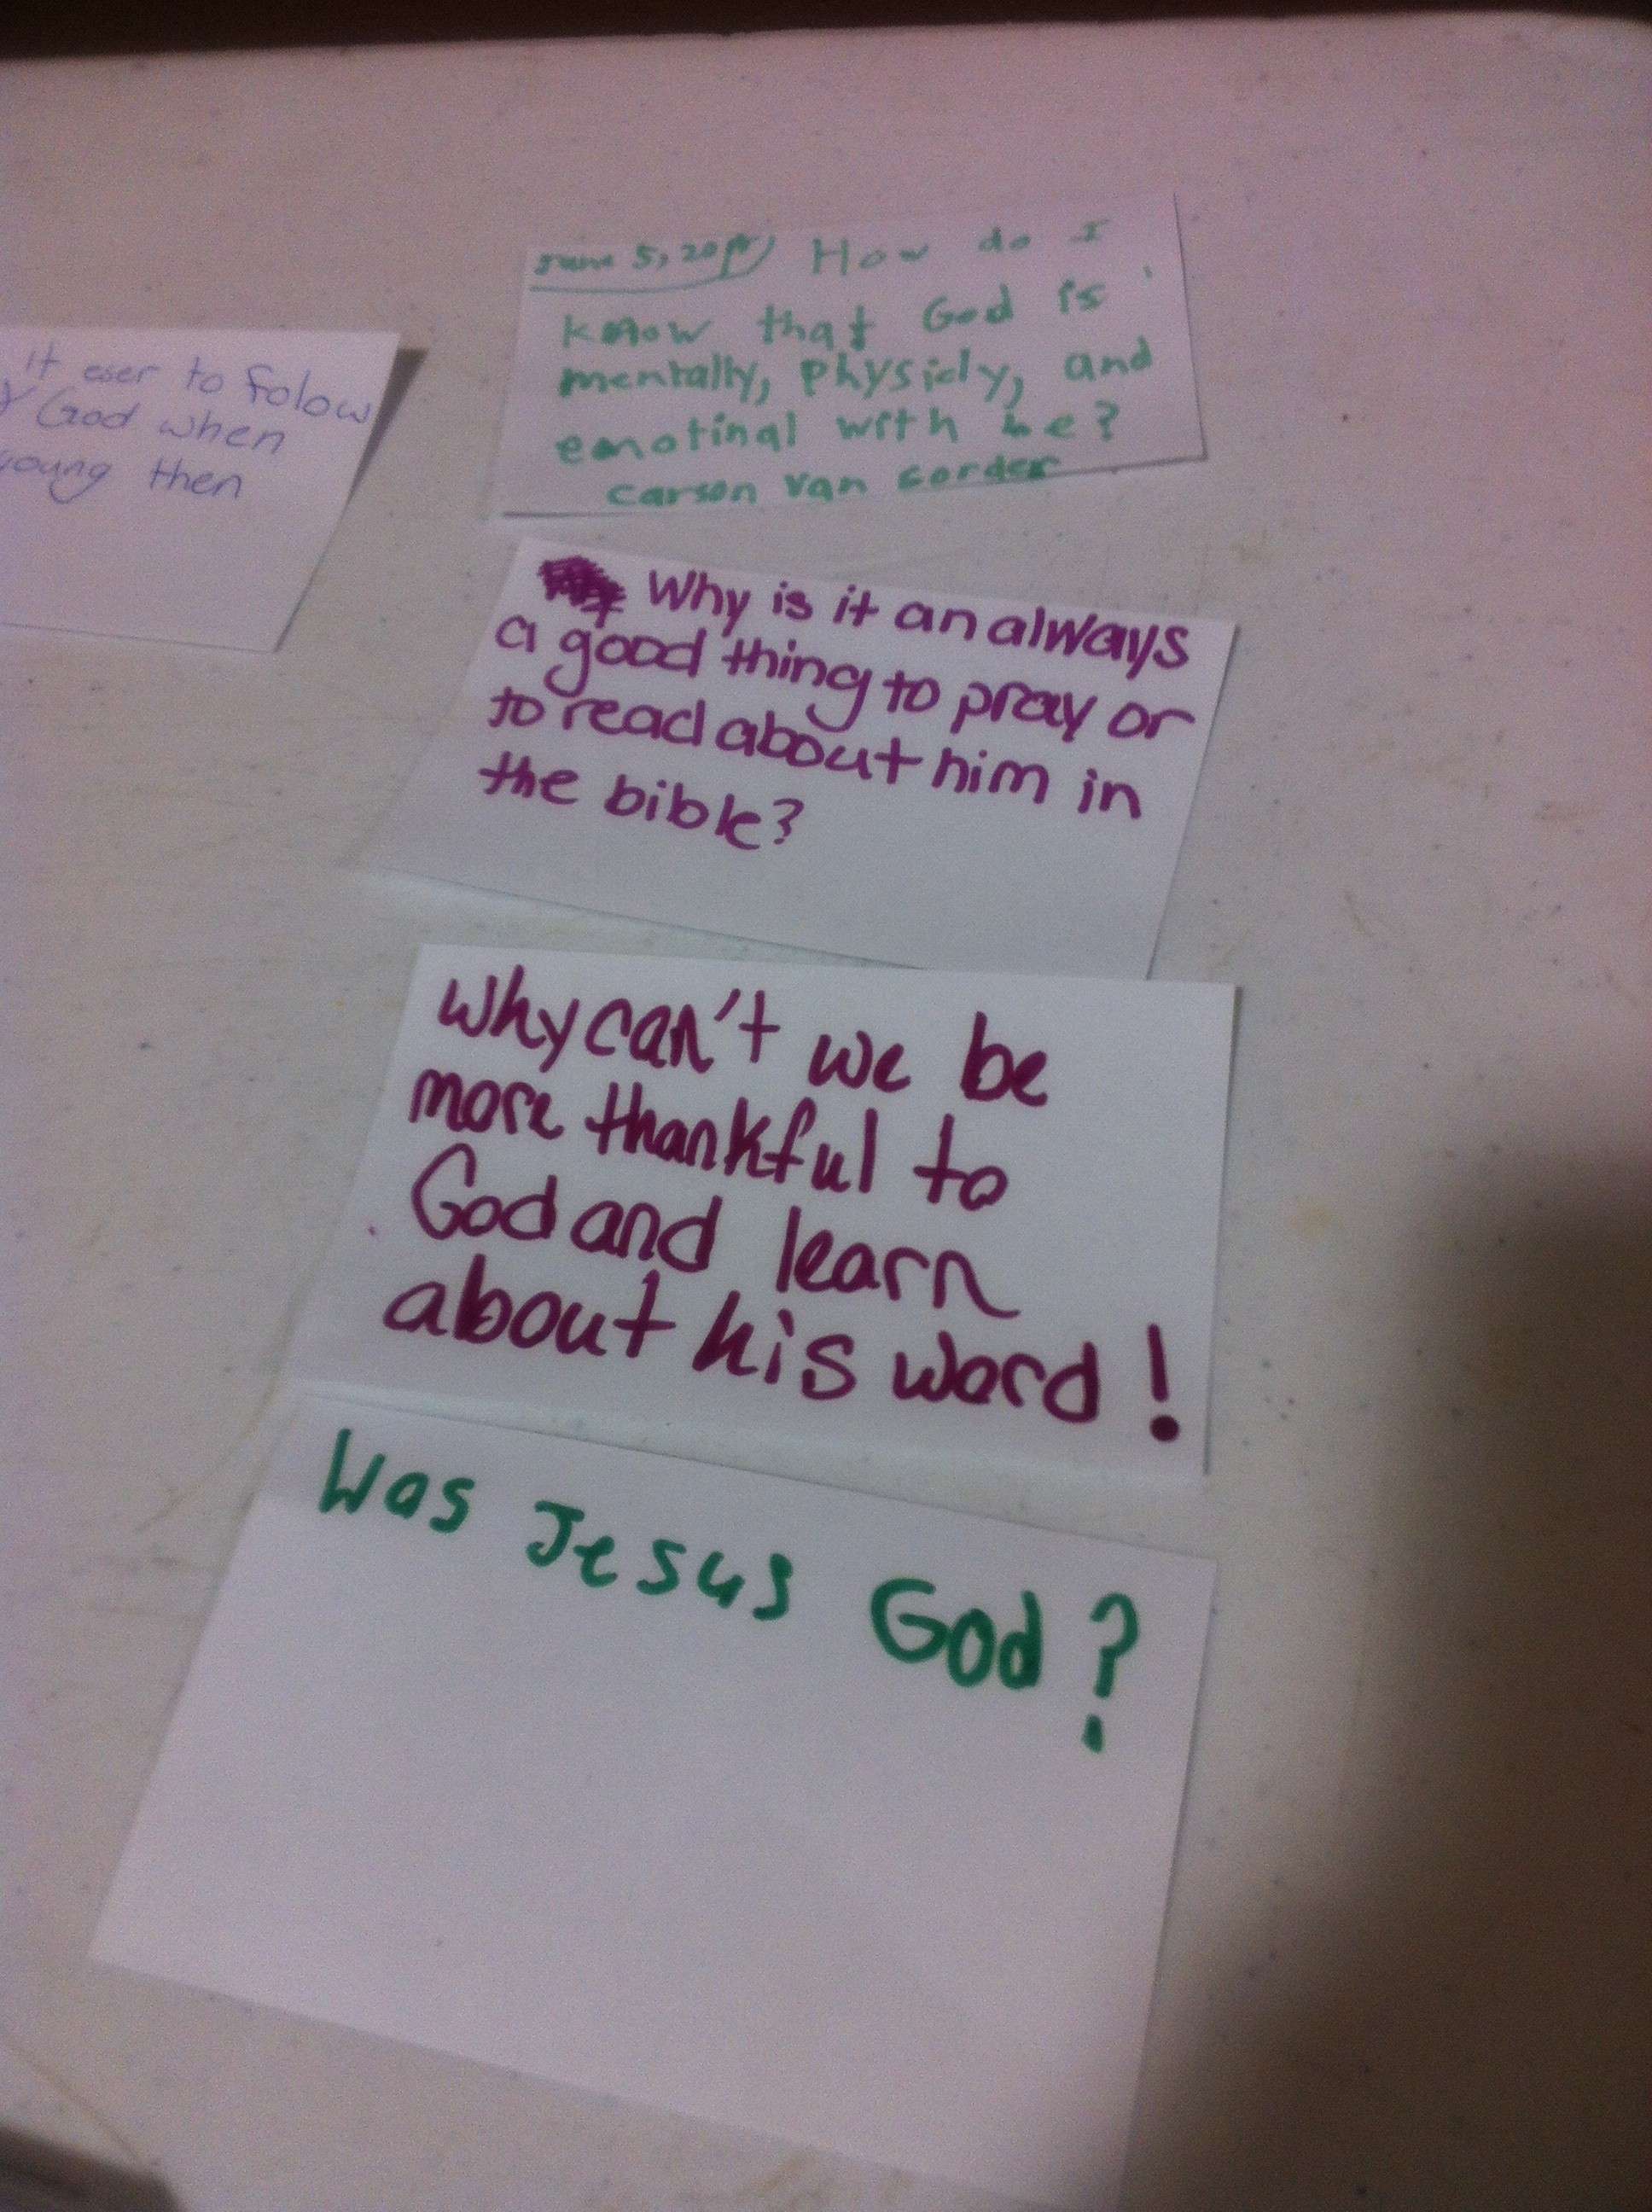 it eser to folow
God when
young then
June 5, How do I
know that God is
mentally, physicly, and
emotinal with me?
carson van corder
Why is it an always
a good thing to pray or
to read about him in
the bible?
Why can't we be
more thankful to
God and learn
about his word!
Was Jesus God?